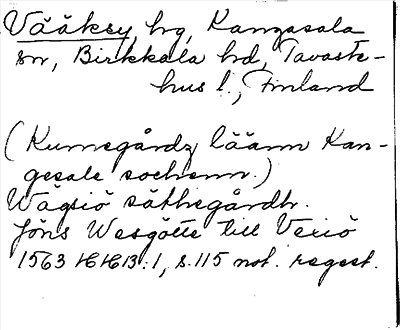 Vääksy, hg, Kangasala
sn, Birkkala hd, Tavaste-
hus l., Finland
(Kunnegårdz läänn Kan-
gesale sochenn.)
Wägsiö säthegårdh.
Jöns Wesgötte till Vexiö
1563 HH13:1, s.115 not. regest.